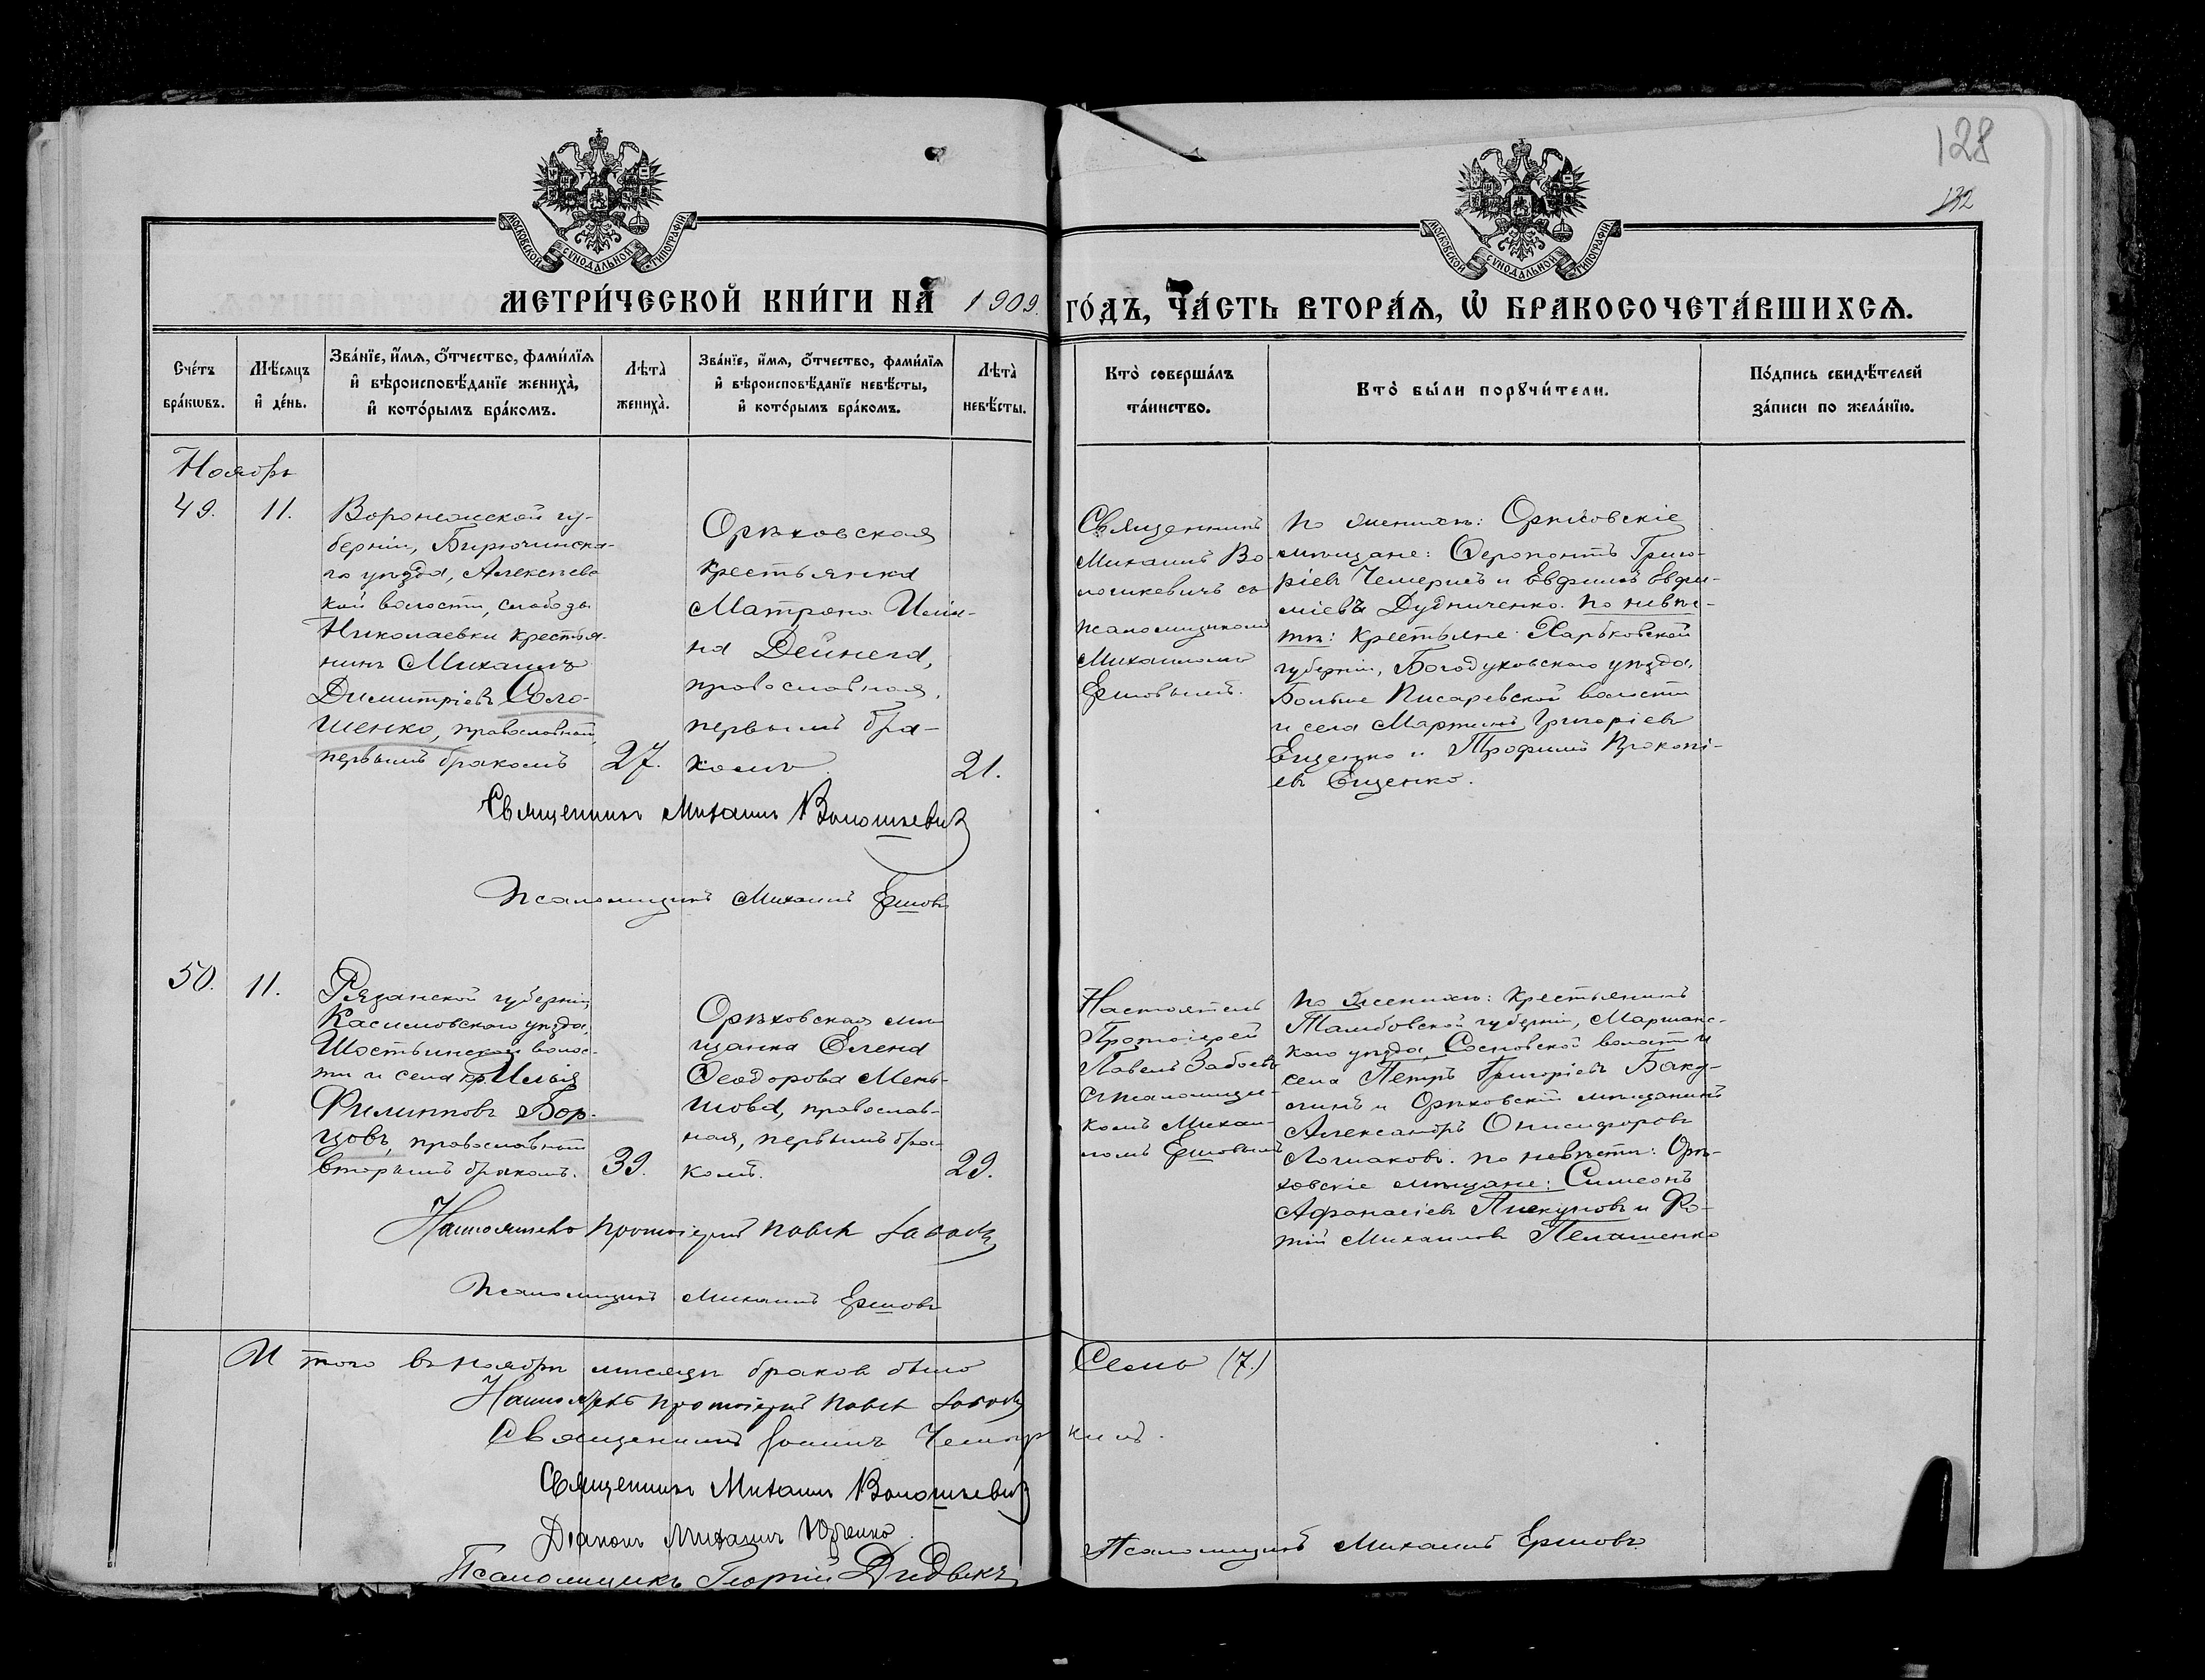 128
132
МОСКОВСКОЙ СѴНОДАЛЬНОЙ ТИПОГРАФІИ
МОСКОВСКОЙ СѴНОДАЛЬНОЙ ТИПОГРАФІИ
МЕТРИ́ЧЕСКОЙ КНИ́ГИ НА 1909. ГО́ДЪ, ЧА́СТЬ ВТОРА́Ѧ, Ѡ҆ БРАКОСОЧЕТА́ВШИХСѦ.
Сче́тъ
бра́кѡвъ.
Мѣ́сяцъ
и҆ де́нь.
Зва́нїе, и҆́мѧ, ѻ҆́тчество, фами́лїѧ
и҆ вѣроисповѣ́данїе жениха̀,
и҆ кото́рымъ бра́комъ.
Лѣта̀
жениха̀.
Зва́нїе, и҆́мѧ, ѻ҆́тчество, фами́лїѧ
и҆ вѣроисповѣ́данїе невѣ́сты,
и҆ кото́рымъ бра́комъ.
Лѣта̀
невѣ́сты.
Кто̀ соверша́лъ
та́инство.
Кто̀ бы́ли порꙋчи́тели.
По́дпись свидѣ́телей
за́писи по жела́нїю.
Ноябрь
49.
11.
Воронежской гу-
берніи, Бирючинска-
го уѣзда, Алексѣевс
кой волости, слободы
Николаевки крестья-
нинъ Михаилъ
Димитріевъ Соло-
шенко, православный,
первымъ бракомъ
27.
Орѣховская
крестьянка
Матрона Ильи-
на Дейнега,
православная,
первымъ бра-
комъ.
21.
Священникъ
Михаилъ Во-
лошкевичъ съ
псаломщикомъ
Михаиломъ
Ершовымъ.
По женихѣ: Орѣховскіе
мѣщане: Ѳерапонтъ Григо-
ріевъ Чемерисъ и Евфимъ Евфи-
міевъ Дудниченко. По невѣс-
тѣ: крестьяне Харьковской
губерніи, Богодуховскаго уѣзда,
Больше Писаревской волости
и села Мартинъ Григоріевъ
Ещенко и Трофимъ Прокопі-
евъ Ещенко.
Священникъ Михаилъ Волошкевичъ
Псаломщикъ Михаилъ Ершовъ
50.
11.
Рязанской губерніи,
Касимовскаго уѣзда,
Шостьинской волос-
ти и села кр. Илья
Филипповъ Бор-
цовъ, православный
вторымъ бракомъ.
39.
Орѣховская мѣ-
щанка Елена
Ѳеодорова Мень-
шова, православ-
ная, первымъ бра-
комъ.
29.
Настоятель
Протоіерей
Павелъ Забоевъ
съ псаломщи-
комъ Михаи-
ломъ Ершовымъ
По женихѣ: крестьянинъ
Тамбовской губерніи, Моршанс-
каго уѣзда, Сосновской волости и
села Петръ Григоріевъ
и Орѣховскій мѣщанинъ
Александръ Онисифоровъ
Логиаковъ. по невѣсти: Орѣ-
ховскіе мѣщане: Симеонъ
Афанасіевъ Пискуновъ и Фо-
тій Михаиловъ Пелашенко
Настоятель Протоіерей Павелъ Забоевъ
Псаломщикъ Михаилъ Ершовъ
Итого въ ноябрѣ мѣсяцѣ браковъ было Семь (7.)
Настоятель Протоіерей Павелъ Забоевъ
Священникъ Іоаннъ
Священникъ Михаилъ Волошкевичъ
Діаконъ Михаилъ Юрченко.
Псаломщикъ Георгій Дидыкъ
Псаломщикъ Михаилъ Ершовъ